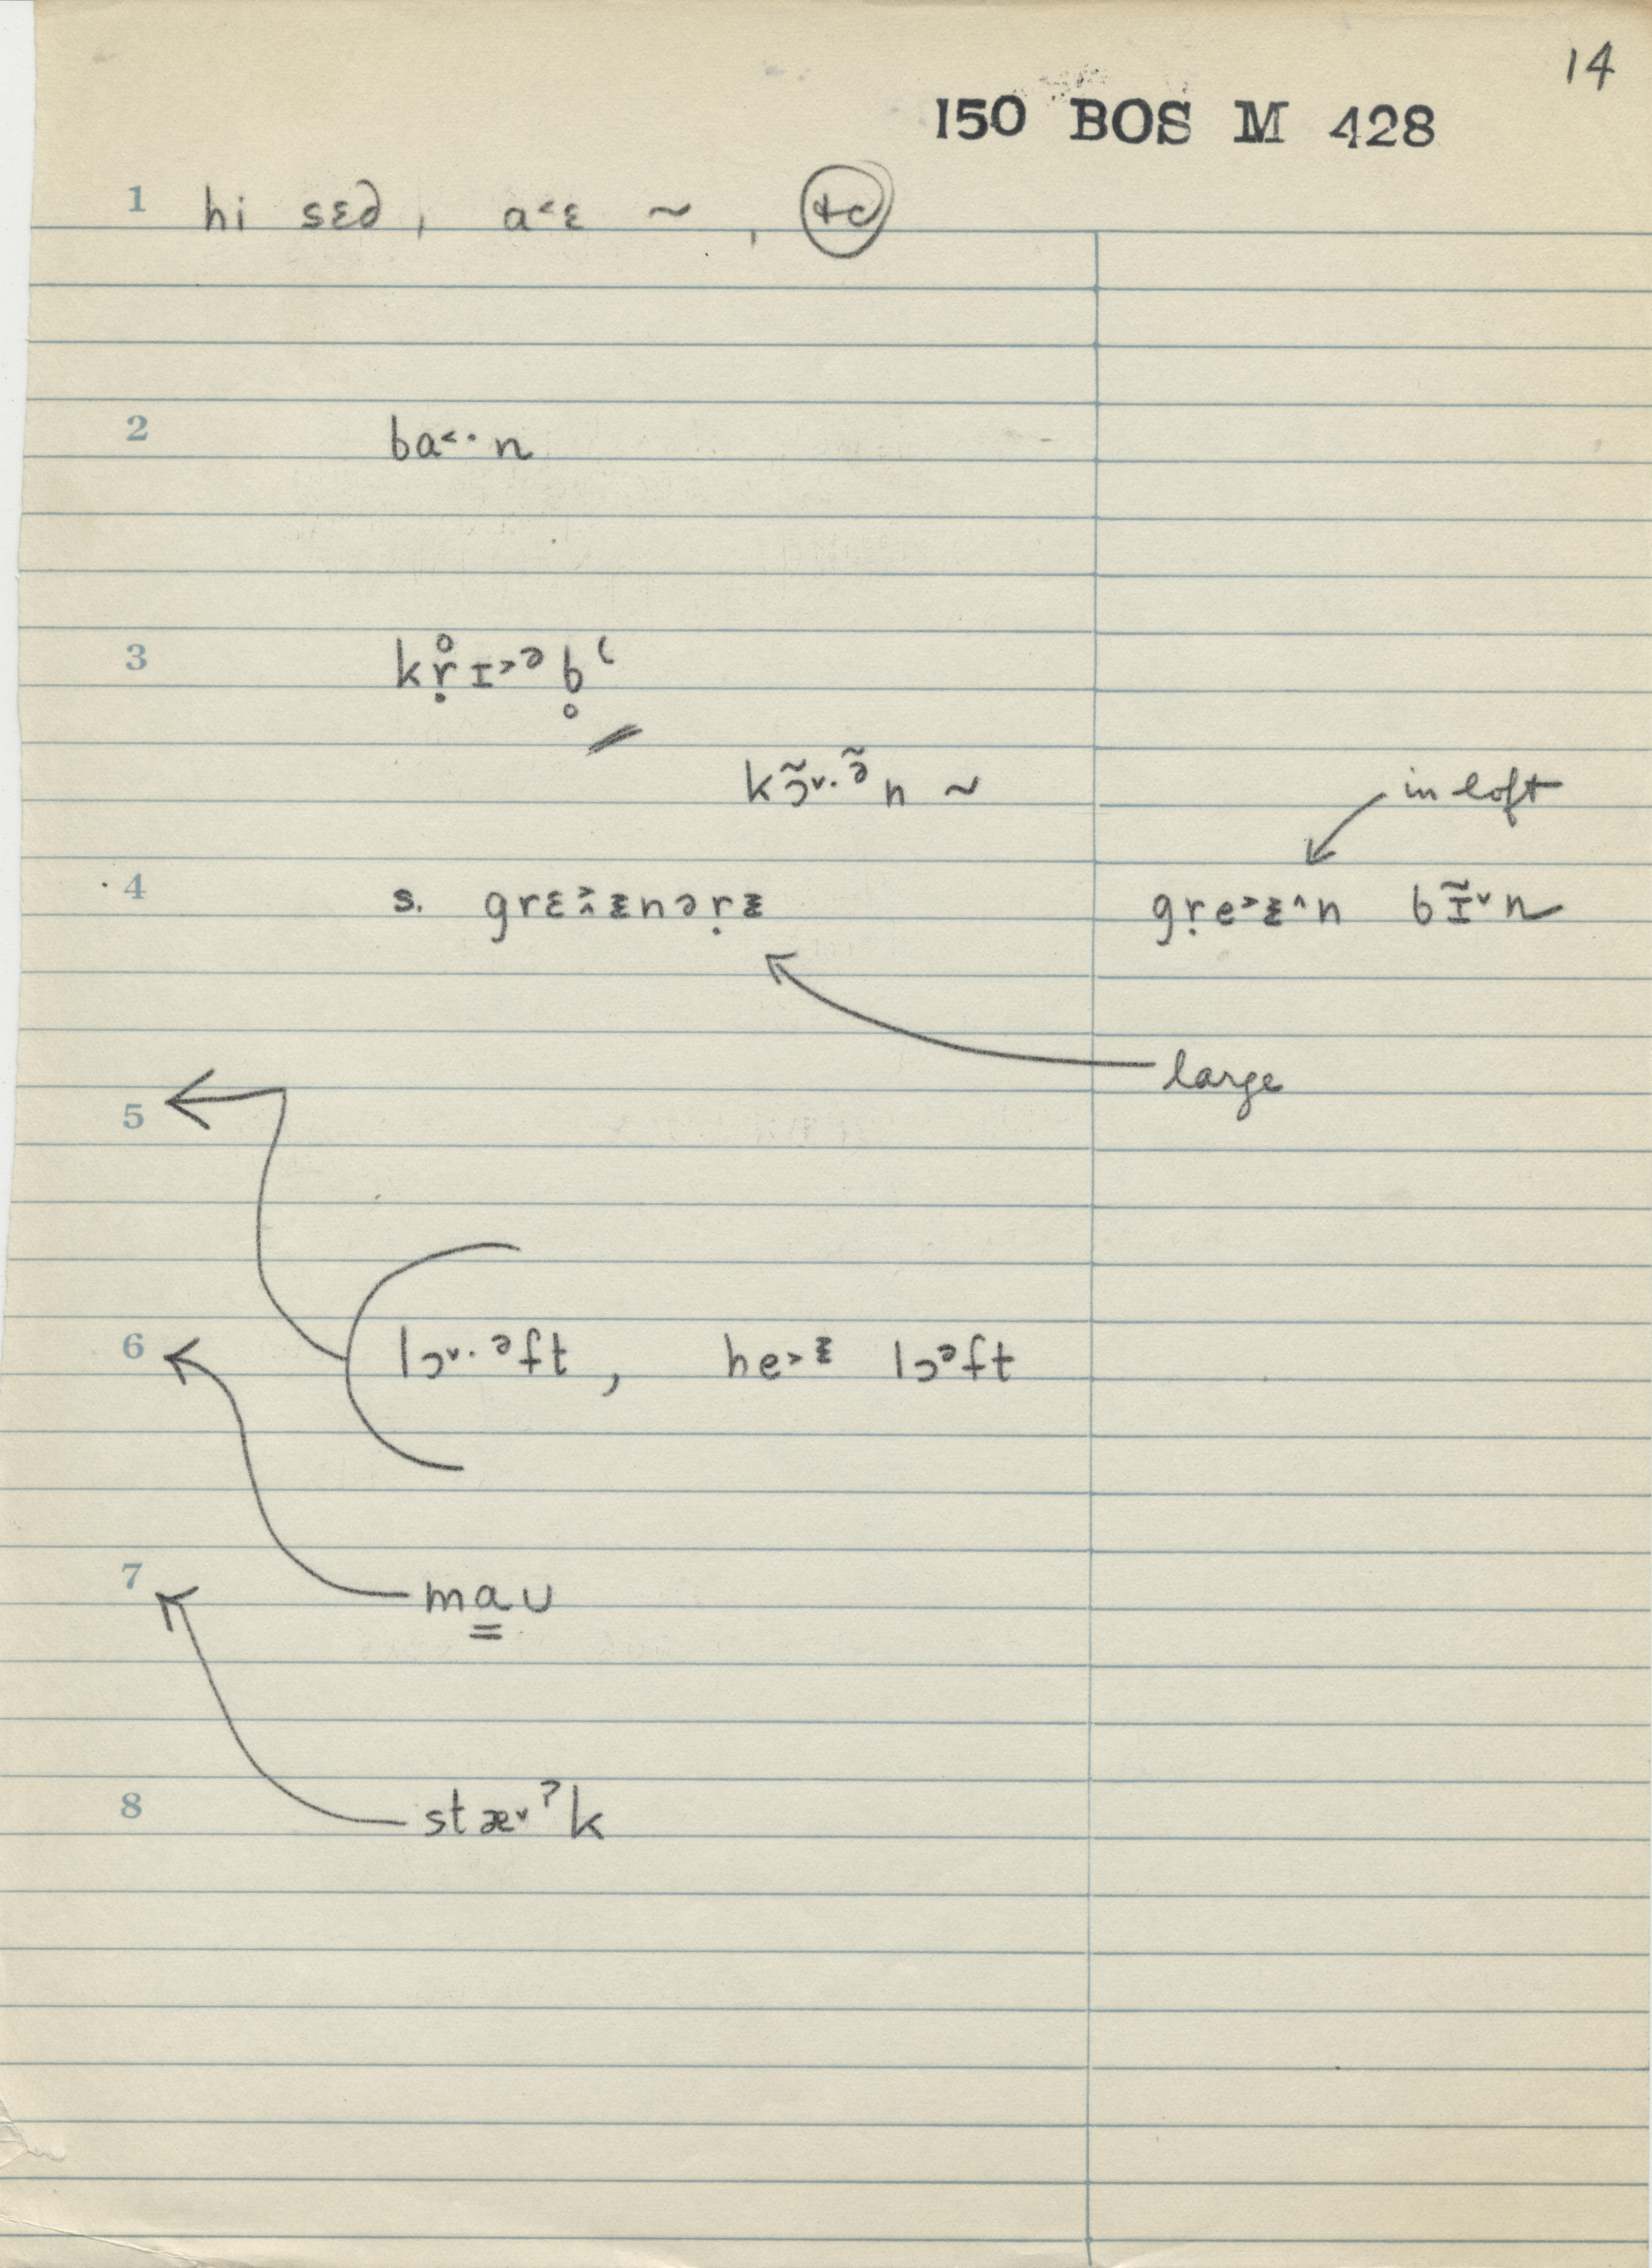 14
150 BOS M 428
1 hi sɛd, a˂ɛ ~ , +c
2 ba˂·n
3 kṛ̊ɪ˃ᵊb̥ʻ
kɔ̃˅·ᵊ̃n ~
in loft
4 s. grɛ˃˄ᵻnəṛᵻ gṛe˃ᵻ˄n bɪ̃˅n
large
5
6 lɔ˅·ᵊft, he˃ᵻ lɔᵊft
7 ma̳u
8 stæ˅ˀk